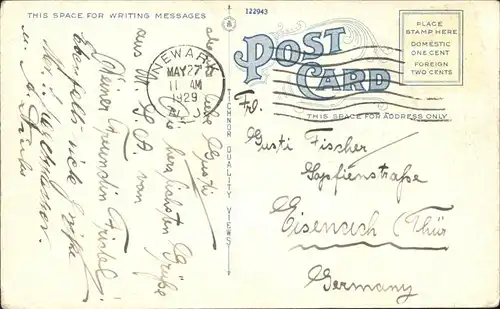 THIS SPACE FOR WRITING MESSAGES
122943
POST CARD
PLACE
STAMP HERE
DOMESTIC
ONE CENT
FOREIGN
TWO CENTS
THIS SPACE FOR ADDRESS ONLY
NEWARK
MAY 27
11 AM
1929
N.J.
TICHNOR QUALITY VIEWS
liebe Gusti
Die herzlichsten Grüße
aus U.S.A. von
Deiner Freundin Fristal
Ebenfalls viele Grüße
Frl.
Gusti Fischer
Sophienstraße
Eisenach (Thür
Germany